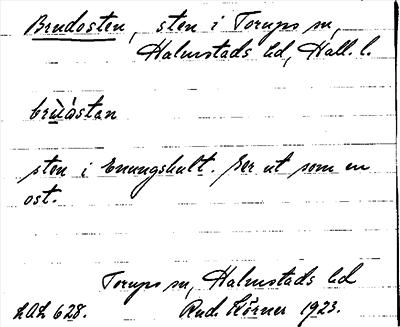 Brudosten, sten i Torups sn,
Halmstads hd, Hall. l.
brùdstan
sten i Enungshult. Ser ut som en
ost.
Torups sn, Halmstads hd
LAL 628. Rud. Körner 1923.